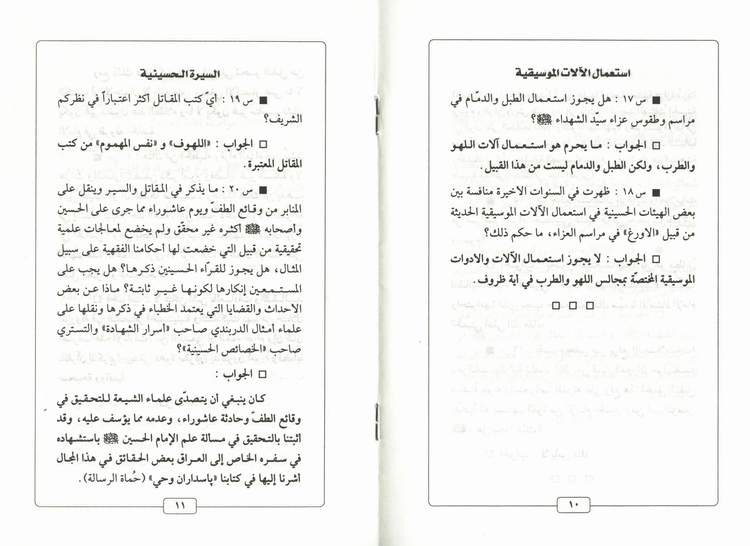 استعمال الآلات الموسيقية
■ س ١٧ : هل يجوز استعمال الطبل والدمّام في
مراسم وطقوس عزاء سيّد الشهداء ﷺ؟
□ الجواب : ما يحرم هو استعمال آلات اللهو
والطرب، ولكن الطبل والدمام ليست من هذا القبيل.
■ س ١٨ : ظهرت في السنوات الاخيرة منافسة بين
بعض الهيئات الحسينية في استعمال الآلات الموسيقية الحديثة
من قبيل «الاورغ» في مراسم العزاء، ما حكم ذلك؟
□ الجواب : لا يجوز استعمال الآلات والادوات
الموسيقية المختصّة بمجالس اللهو والطرب في أية ظروف.
□ □ □
١٠
السيرة الحسينية
■ س ١٩ : أيّ كتب المقاتل أكثر اعتباراً في نظركم
الشريف؟
□ الجواب : «اللهوف» و «نفس المهموم» من كتب
المقاتل المعتبرة.
■ س ٢٠ : ما يذكر في المقاتل والسير وينقل على
المنابر من وقائع الطفّ ويوم عاشوراء مما جرى على الحسين
وأصحابه أكثره غير محقّق ولم يخضع لمعالجات علمية
تحقيقية من قبيل التي خضعت لها أحكامنا الفقهية على سبيل
المثال، هل يجوز للقرّاء الحسينين ذكرها؟ هل يجب على
المستمعين إنكارها لكونها غير ثابتة؟ ماذا عن بعض
الاحداث والقضايا التي يعتمد الخطباء في ذكرها ونقلها على
علماء أمثال الدربندي صاحب «أسرار الشهادة» والتستري
صاحب «الخصائص الحسينية»؟
□ الجواب :
كان ينبغي أن يتصدّى علماء الشيعة للتحقيق في
وقائع الطفّ وحادثة عاشوراء، وعدمه مما يؤسف عليه، وقد
اثبتنا بالتحقيق في مسالة علم الإمام الحسين باستشهاده
في سفره الخاص إلى العراق بعض الحقائق في هذا المجال
أشرنا إليها في كتابنا «پاسداران وحي» (حُماة الرسالة).
١١